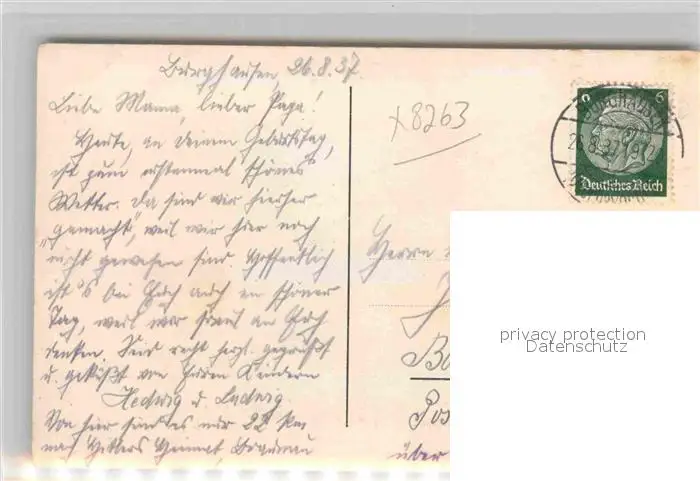 Burghausen, 26.8.37
Liebe Mamma, lieber Papa!
Heute, an deinem Geburtstag,
ist zum erstenmal schönes
Wetter. Da sind wir hierher
"gemacht", weil wir hier noch
nicht gewesen sind. Hoffentlich
ist's bei Euch auch ein schöner
Tag, weil wir heut an Euch
denken. Seid recht herzl. gegrüßt
u. geküßt von Euren Kindern
Hedwig u Ludwig.
Von hier sind es nur 22 km
nach Hitlers Heimat, Braunau
x8263
6 6
BURGHAUSEN
26.8.37
Deutsches Reich
Herrn
Pos
über
privacy protection
Datenschutz